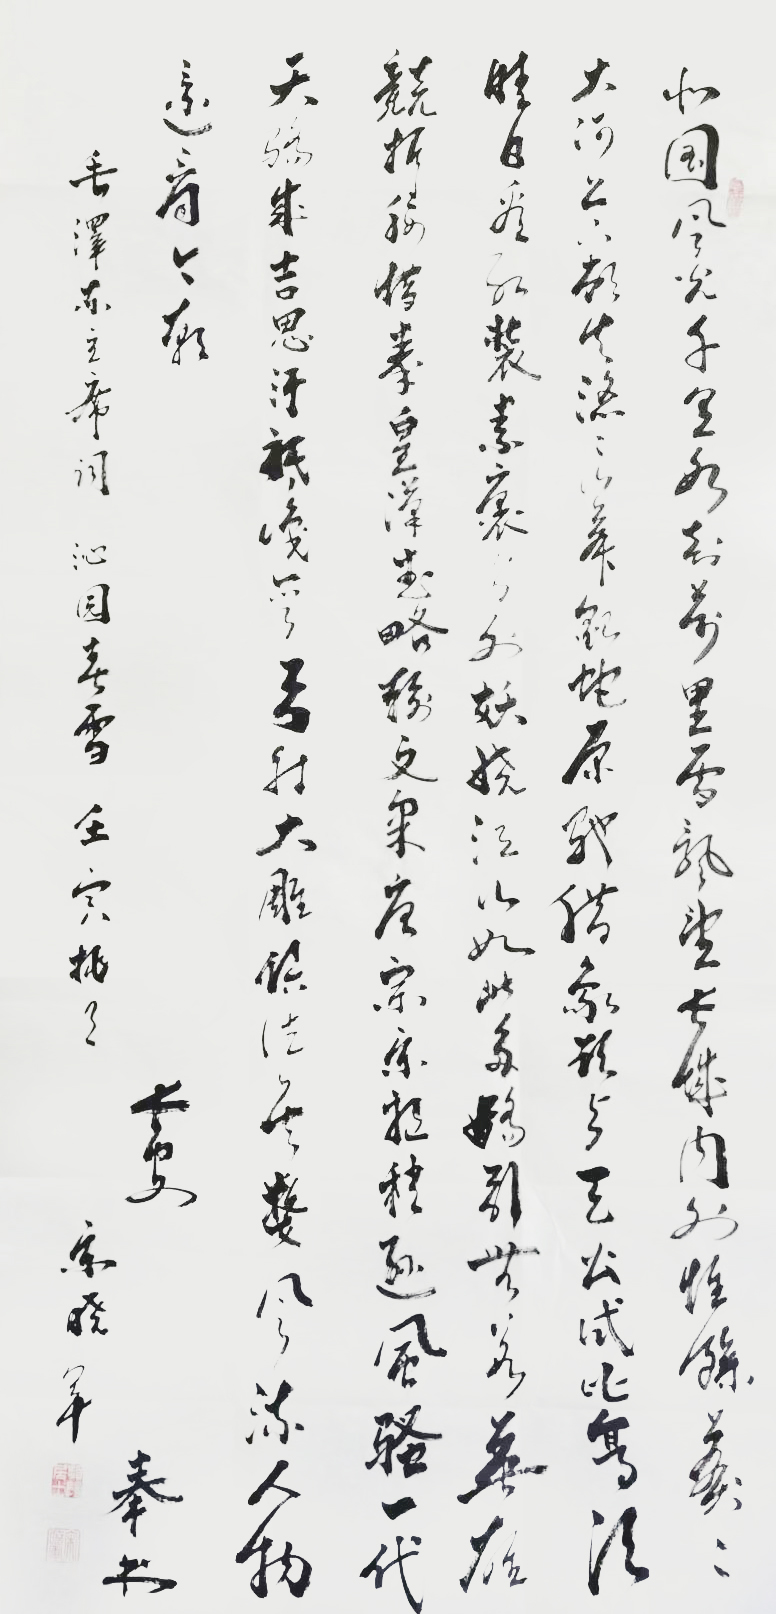 北国风光千里冰封萬里雪飄望长城内外惟餘莽〻
大河上下頓失滔〻山舞銀蛇原馳腊象欲与天公试比高须
晴日看红裝素裹分外妖娆江山如此多嬌引無数英雄
競折腰惜秦皇漢武略输文采唐宗宋祖稍逊風騷一代
天骄成吉思汗祇识弯弓射大雕俱往矣數风流人物
还看今朝
毛澤东主席词 沁园春雪 壬寅桃月
宋晓军
奉书